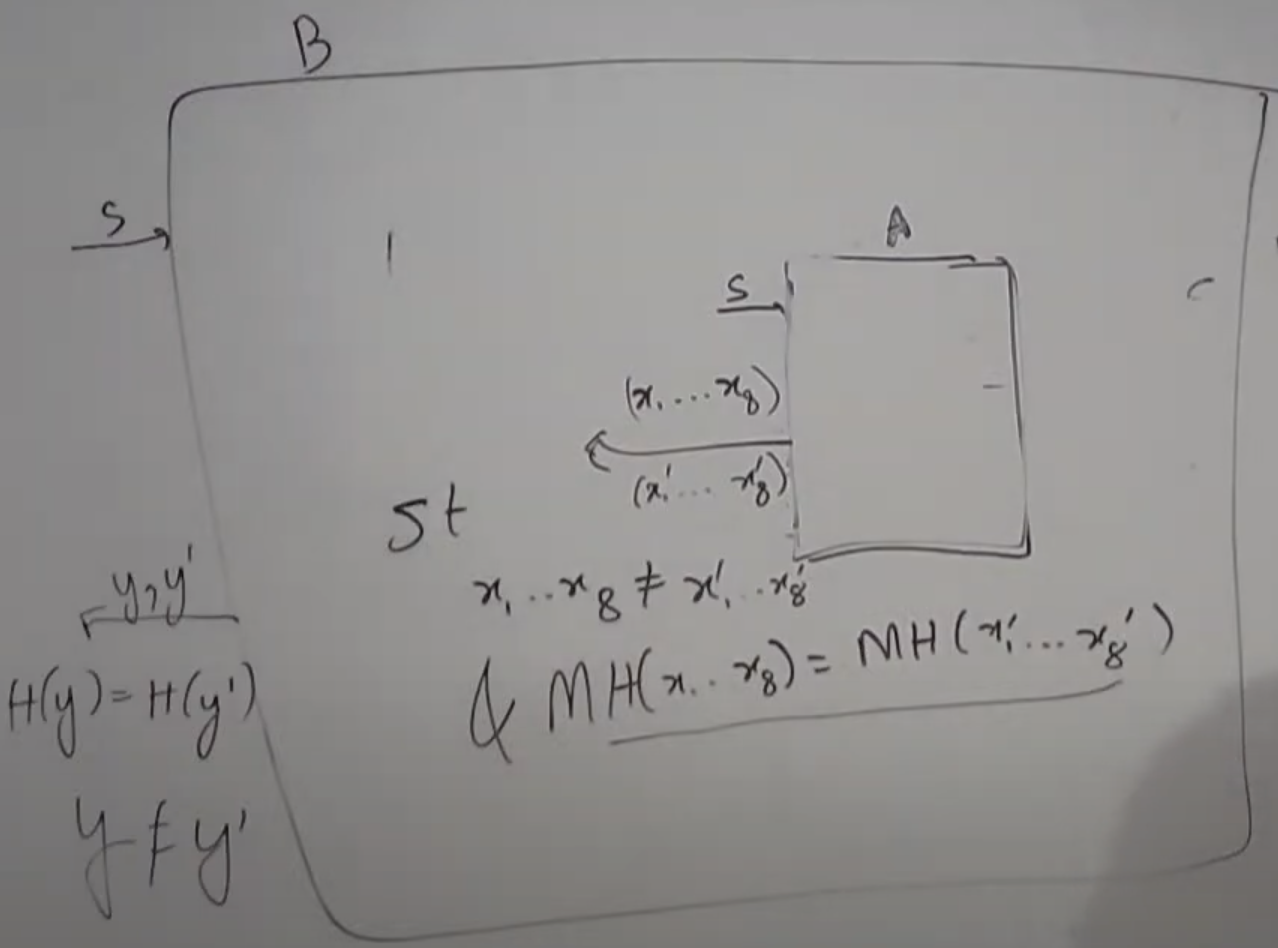 B
S
A
S
(x₁...x₈)
(x₁'...x₈')
st
x₁..x₈ ≠ x₁'..x₈'
y, y'
& MH(x..x₈) = MH(x₁'...x₈')
H(y) = H(y')
y ≠ y'